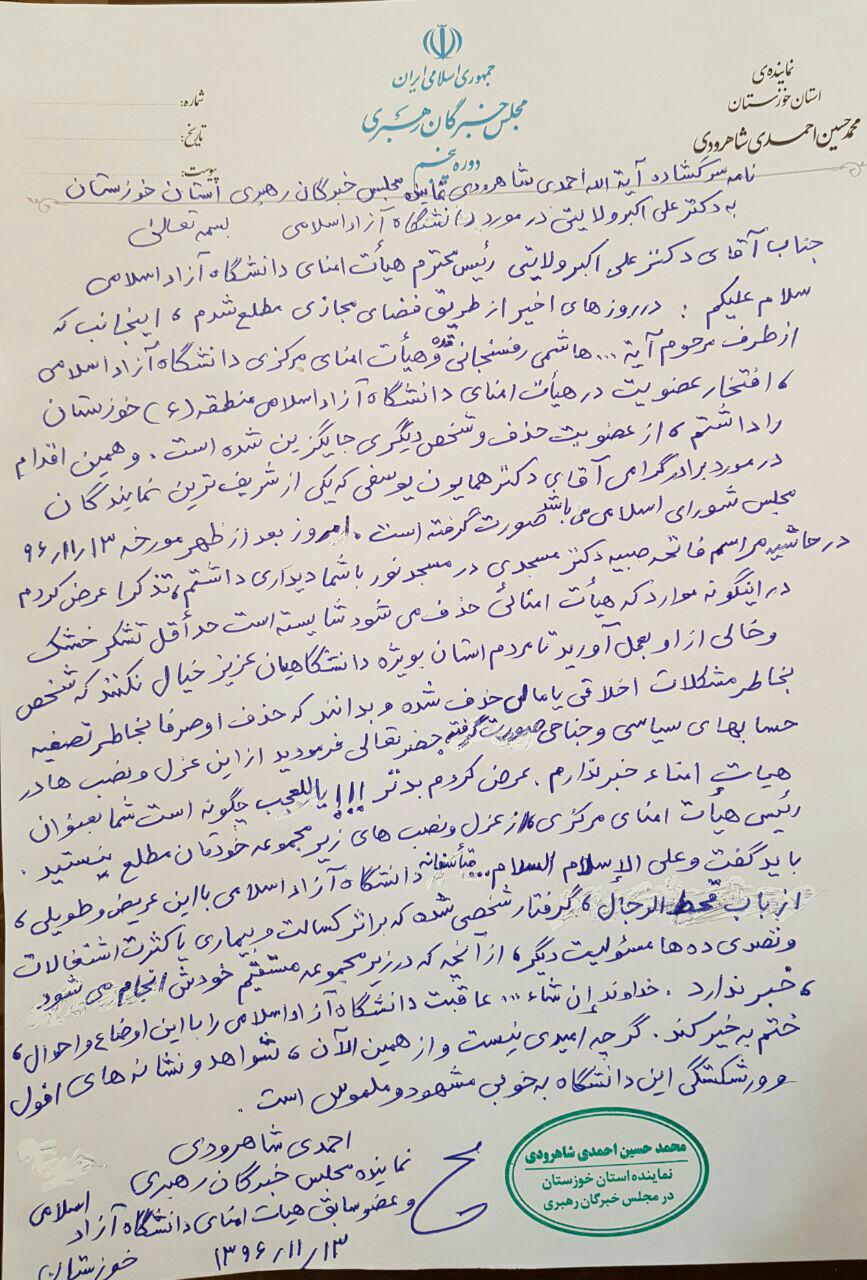 جمهوری اسلامی ایران
مجلس خبرگان رهبری
دوره پنجم
نماینده‌ی
استان خوزستان
محمدحسین احمدی شاهرودی
شماره:
تاریخ:
پیوست:
نامه سرگشاده آیة الله احمدی شاهرودی نماینده مجلس خبرگان رهبری استان خوزستان
به دکتر علی اکبر ولایتی در مورد دانشگاه آزاد اسلامی بسمه تعالی
جناب آقای دکتر علی اکبر ولایتی رئیس محترم هیأت امنای دانشگاه آزاد اسلامی
سلام علیکم : در روزهای اخیر از طریق فضای مجازی مطلع شدم ، اینجانب که
از طرف مرحوم آیة ... هاشمی رفسنجانی قده و هیأت امنای مرکزی دانشگاه آزاد اسلامی
، افتخار عضویت در هیأت امنای دانشگاه آزاد اسلامی منطقه (۶) خوزستان
را داشتم ، از عضویت حذف و شخص دیگری جایگزین شده است . و همین اقدام
در مورد برادر گرامی آقای دکتر همایون یوسفی که یکی از شریف ترین نمایندگان
مجلس شورای اسلامی می باشد صورت گرفته است . امروز بعد از ظهر مورخه ۹۶/۱۱/۱۳
در حاشیه مراسم فاتحه صبیه دکتر مسجدی در مسجد نور با شما دیداری داشتم ، تذکرا عرض کردم
در اینگونه موارد که هیأت امنائی حذف می شود شایسته است حداقل تشکر خشک
و خالی از او بعمل آورید تا مردم استان بویژه دانشگاهیان عزیز خیال نکنند که شخص
بخاطر مشکلات اخلاقی یا مالی حذف شده و بدانند که حذف او صرفا بخاطر تصفیه
حسابهای سیاسی و جناحی صورت گرفته حضرتعالی فرمودید از این عزل و نصب ها در
هیات امناء خبر ندارم . عرض کردم بدتر !!! یاللعجب چگونه است شما بعنوان
رئیس هیأت امنای مرکزی ، از عزل و نصب های زیر مجموعه خودتان مطلع نیستید .
باید گفت وعلی الإسلام السلام ... متأسفانه دانشگاه آزاد اسلامی با این عریض و طویلی ،
از باب قحط الرجال ، گرفتار شخصی شده که براثر کسالت و بیماری یا کثرت اشتغالات
و تصدی ده ها مسئولیت دیگر ، از آنچه که در زیر مجموعه مستقیم خودش انجام می شود
، خبر ندارد . خداوند إن شاء ... عاقبت دانشگاه آزاد اسلامی را با این اوضاع و احوال ،
ختم به خیر کند . گرچه امیدی نیست و از همین الآن ، شواهد و نشانه های افول
و ورشکستگی این دانشگاه به خوبی مشهود و ملموس است .
احمدی شاهرودی
نماینده مجلس خبرگان رهبری
و عضو سابق هیات امنای دانشگاه آزاد اسلامی
خوزستان
۱۳۹۶/۱۱/۱۳
محمد حسین احمدی شاهرودی
نماینده استان خوزستان
در مجلس خبرگان رهبری